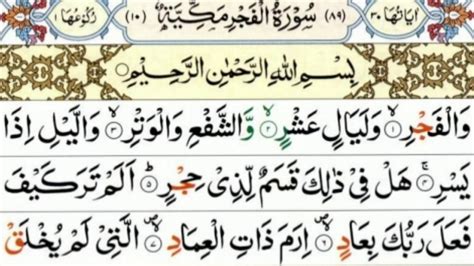 اٰیَاتُهَا ٣٠ (٨٩) سُوْرَةُ الْفَجْرِ مَكِّیَّةٌ (١٠) رُكُوْعُهَا ١
بِسْمِ اللّٰهِ الرَّحْمٰنِ الرَّحِیْمِ
وَالْفَجْرِ ۙ‏﴿١﴾ وَلَیَالٍ عَشْرٍ ۙ‏﴿٢﴾ وَّالشَّفْعِ وَالْوَتْرِ ۙ‏﴿٣﴾ وَالَّیْلِ اِذَا
یَسْرِ ۚ‏﴿٤﴾ هَلْ فِیْ ذٰلِكَ قَسَمٌ لِّذِیْ حِجْرٍ ؕ‏﴿٥﴾ اَلَمْ تَرَ كَیْفَ
فَعَلَ رَبُّكَ بِعَادٍ ۙ‏﴿٦﴾ اِرَمَ ذَاتِ الْعِمَادِ ۙ‏﴿٧﴾ الَّتِیْ لَمْ یُخْلَقْ